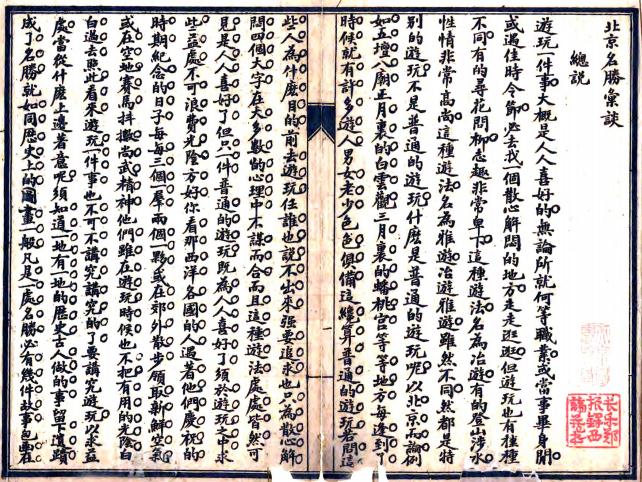 北京名勝彙談
總說
遊玩一件事大概是人人喜好的無論所就何等職業或當事畢身閒
或遇佳時令節必去找個散心解悶的地方走走逛逛但遊玩也有種種
不同有的尋花問柳志趣非常卑下這種遊法名為冶遊有的登山涉水
性情非常高尚這種遊法名為雅遊冶遊雅遊雖然不同然都是特
別的遊玩不是普通的遊玩什麼是普通的遊玩呢以北京而論例
如五壇八廟正月裏的白雲觀三月裏的蟠桃宮等等地方每逢到了
時候就有許多遊人男女老少色色俱備這總算普通的遊玩若問這
些人為什麼目的前去遊玩任誰也說不出來強要追求也只為散心解
悶四個大字在大多數的心理中不謀而合而且這種遊法處處皆然可
見是人人喜好了但只一件普通的遊玩既為人人喜好了須於遊玩之中求
些益處不可浪費光陰方好你看那西洋各國的人遇著他們慶祝的
時期紀念的日子每每三個一羣兩個一夥或在郊外散步領取新鮮空氣
或在空地賽馬抖擻尚武精神他們雖在遊玩時候也不把有用的光陰白
白過去照此看來遊玩一件事也不可不講究講究的了要講究遊玩以求益
處當從什麼上邊著意呢須知道一地有一地的歷史古人做的事留下遺蹟
成了名勝就如同歷史上的圖畫一般凡是一處名勝必有幾件故事包裹在
長樂鄭
振鐸西
諦藏書